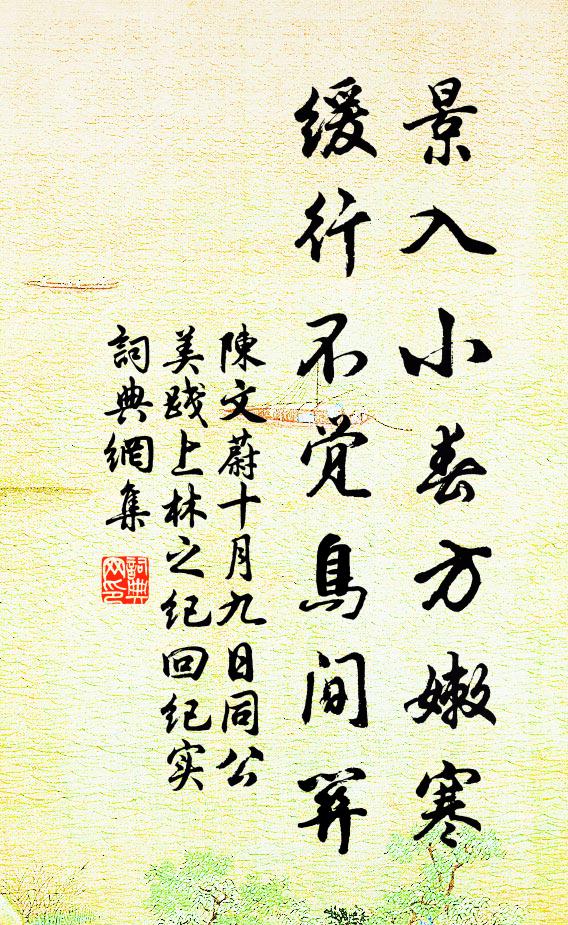 景入小春方嫩寒
缓行不觉鳥间关
陳文蔚十月九日同公
美践上林之纪回纪实
詞典網集
詞典网印